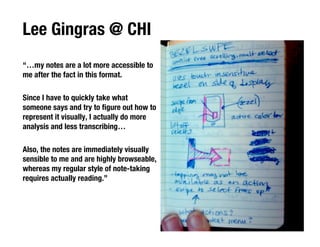 Lee Gingras @ CHI
“…my notes are a lot more accessible to
me after the fact in this format.
Since I have to quickly take what
someone says and try to figure out how to
represent it visually, I actually do more
analysis and less transcribing…
Also, the notes are immediately visually
sensible to me and are highly browseable,
whereas my regular style of note-taking
requires actually reading.”
BEZELSWIPE
uses touch insensitive
bezel on side of display
(bezel)
active color bar
- tapping may not be
available as an action
- swipe to select from
actions?
menu?